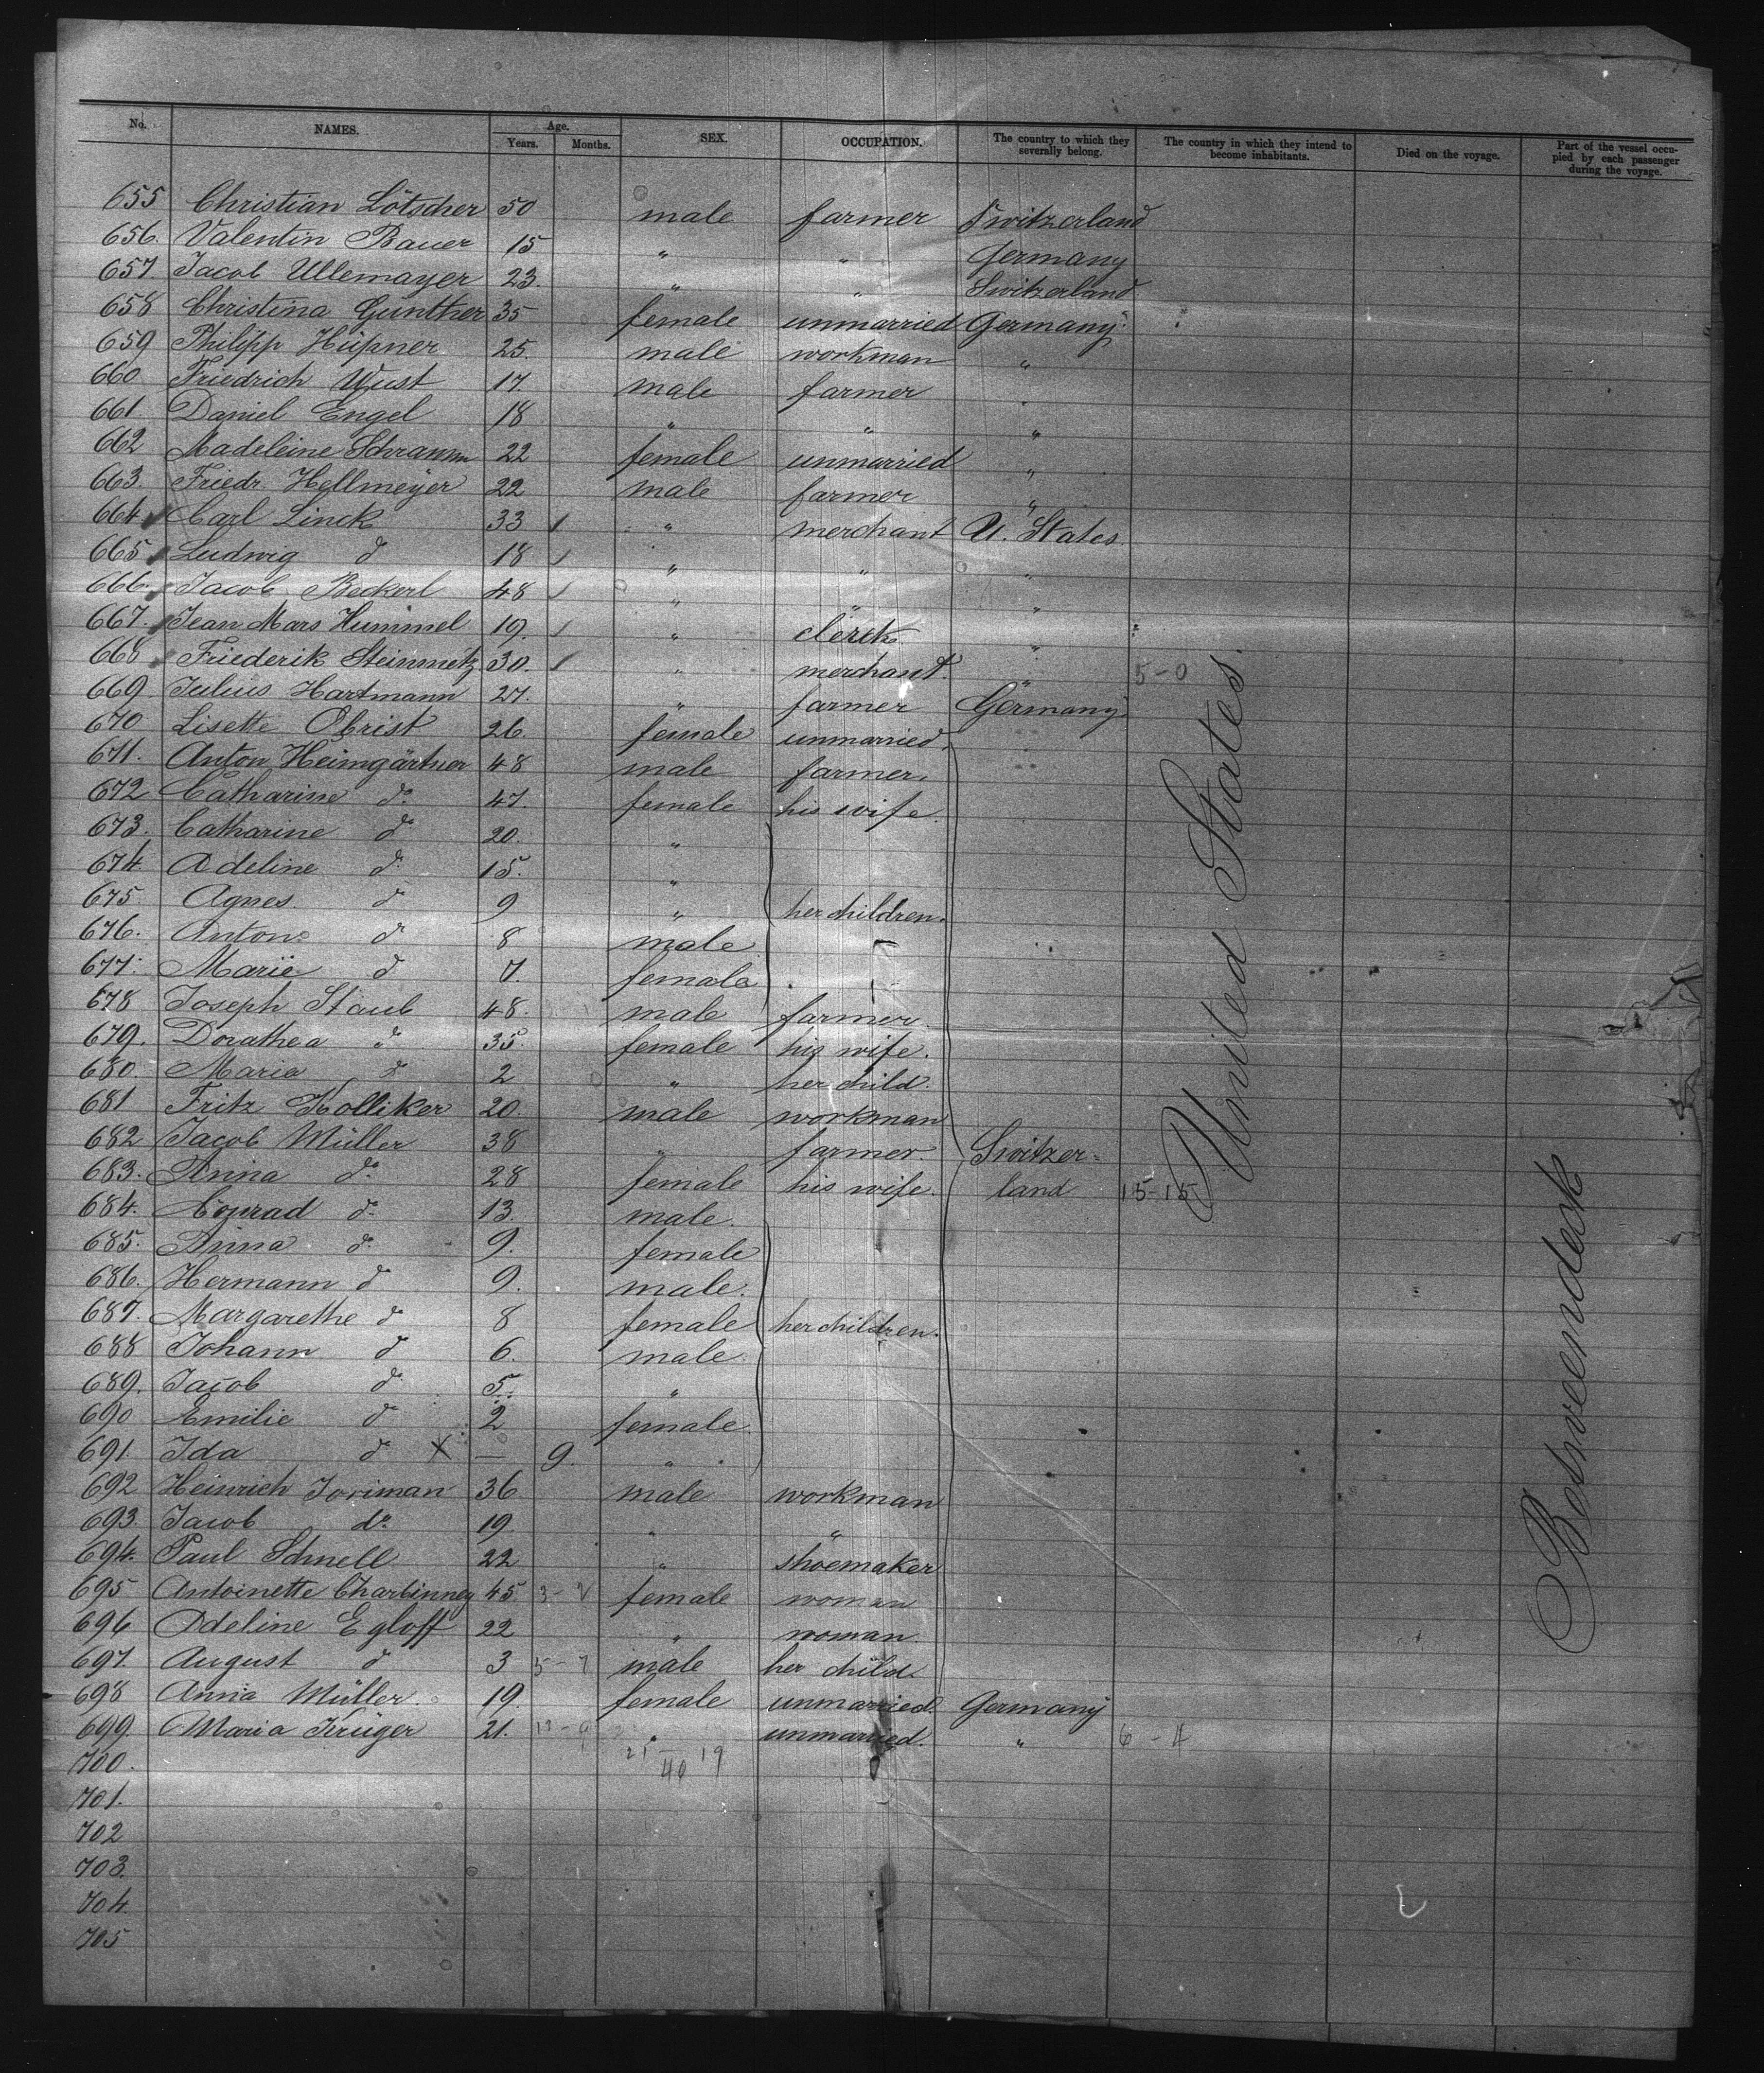 No. NAMES. Age. Years. Months. SEX. OCCUPATION. The country to which they severally belong. The country in which they intend to become inhabitants. Died on the voyage. Part of the vessel occupied by each passenger during the voyage.
655 Christian Lötscher 50 male farmer Switzerland
656. Valentin Bauer 15 " " Germany
657 Jacob Ullemayer 23. " " Switzerland
658 Christina Günther 35 female unmarried Germany
659 Philipp Hüpner 25. male workman "
660 Friedrich Wust 17. male farmer "
661. Daniel Engel 18 " " "
662 Madeleine Schramm 22 female unmarried "
663. Friedr. Hellmeyer 22 male farmer "
664 Carl Linck 33 " merchant U. States
665 Ludwig d 18 " " "
666. Jacob Beckerl 48 " " "
667. Jean Mars Hummel 19. " clerk "
668 Friederik Steinmetz 30. " merchant. " 5-0
669 Julius Hartmann 27. " farmer Germany
670 Lisette Obrist 26. female unmarried.
671. Anton Heimgärtner 48 male farmer.
672 Catharine do 47. female his wife.
673. Catharine do 20. "
674. Adeline do 15. "
675 Agnes d 9 " her children.
676. Anton d 8 male
677. Marie d 7. female
678 Joseph Staub 48. male farmer.
679. Dorathea d 35. female his wife.
680. Maria d 2 " her child.
681 Fritz Kolliker 20. male workman
682 Jacob Müller 38 " farmer. Switzer=
683. Anna do 28 female his wife. land 15-15
684. Conrad d 13. male.
685. Anna d. 9. female
686. Hermann d 9. male.
687. Margarethe d 8 female her children.
688 Johann d 6. male.
689. Jacob d 5. "
690 Emilie d 2 female.
691. Ida d X — 9. "
692 Heinrich Joriman 36 male workman
693. Jacob do 19. " "
694. Paul Schnell 22 " shoemaker
695 Antoinette Charbinney 45. female woman
696 Adeline Egloff 22 " woman.
697. August d 3 5-7 male her child.
698 Anna Müller. 19. female unmarried. Germany
699. Maria Krüger 21. " unmarried. " 6-4
700. 21 40 19
701.
702
703.
704.
705
United States.